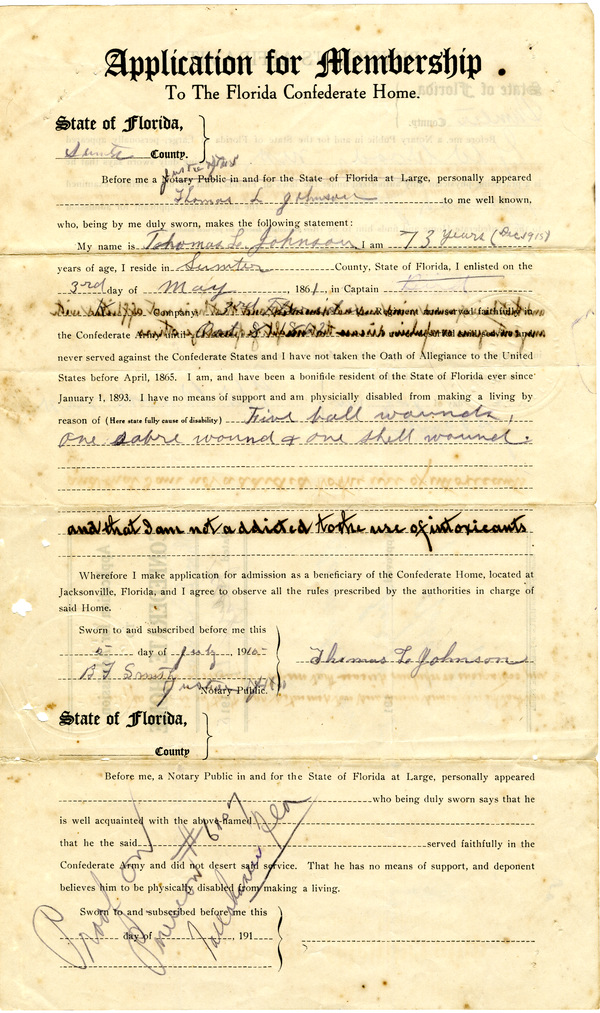 Application for Membership .
To The Florida Confederate Home.
State of Florida,
Sumter County.
Justice of Peace
Before me a Notary Public in and for the State of Florida at Large, personally appeared
Thomas L Johnson to me well known,
who, being by me duly sworn, makes the following statement:
My name is Thomas L. Johnson I am 73 years (Dec 1915)
years of age, I reside in Sumter County, State of Florida, I enlisted on the
3rd day of May, 1861 in Captain
Company
the Confederate Army until
never served against the Confederate States and I have not taken the Oath of Allegiance to the United
States before April, 1865. I am, and have been a bonifide resident of the State of Florida ever since
January 1, 1893. I have no means of support and am physically disabled from making a living by
reason of (Here state fully cause of disability) Five ball wounds,
one sabre wound & one shell wound.
and that I am not addicted to the use of intoxicants
Wherefore I make application for admission as a beneficiary of the Confederate Home, located at
Jacksonville, Florida, and I agree to observe all the rules prescribed by the authorities in charge of
said Home.
Sworn to and subscribed before me this
day of July, 191
Thomas L. Johnson
Notary Public.
State of Florida,
County
Before me, a Notary Public in and for the State of Florida at Large, personally appeared
who being duly sworn says that he
is well acquainted with the above-named
that he the said served faithfully in the
Confederate Army and did not desert said service. That he has no means of support, and deponent
believes him to be physically disabled from making a living.
Sworn to and subscribed before me this
day of , 191
Proof on
Pension
Tallahassee